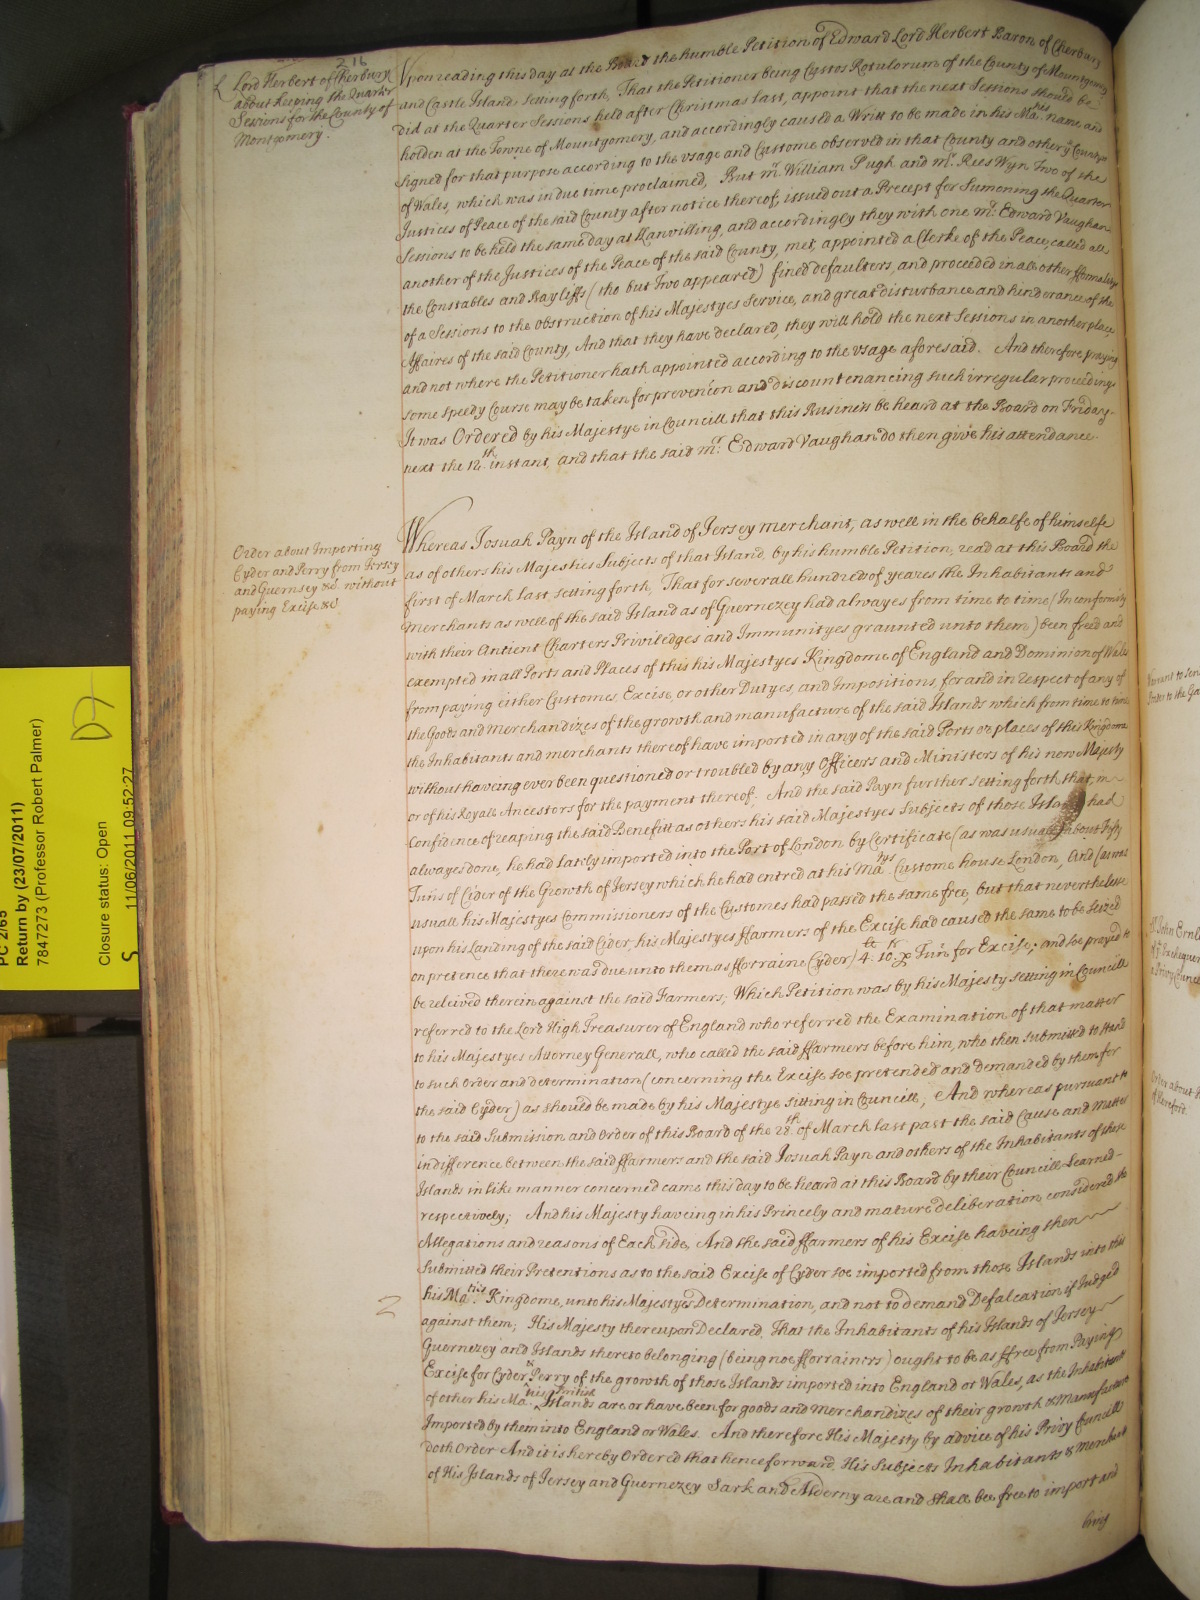 216
L Lord Herbert of Cherbury
about keeping the Quarter
Sessions for the County of
Montgomery.
Upon reading this day at the Board the humble Petition of Edward Lord Herbert Baron of Cherbury
and Castle Island setting forth, That the Petitioner being Custos Rotulorum of the County of Mountgomery
did at the Quarter Sessions held after Christmas last, appoint that the next Sessions should be
holden at the Towne of Mountgomery, and accordingly caused a Writt to be made in his Ma:tys name and
signed for that purpose according to the usage and Custome observed in that County and other ye Countys
of Wales, which was in due time proclaimed, But mr William Pugh and mr. Rees Wyn Two of the
Justices of Peace of the said County after notice thereof, issued out a Precept for Sumoning the Quarter
Sessions to be held the same day at Llanvilling, and accordingly they with one mr: Edward Vaughan
another of the Justices of the Peace of the said County, met, appointed a Clerke of the Peace, called all
the Constables and Bayliffs (tho but Two appeared) fined defaulters, and proceeded in all other fformalitys
of a Sessions to the Obstruction of his Majestyes Service, and great disturbance and hinderance of the
Affaires of the said County, And that they have declared, they will hold the next Sessions in another place,
and not where the Petitioner hath appointed according to the usage aforesaid. And therefore praying
some speedy Course may be taken for prevencon and discountenancing such irregular proceedings
It was Ordered by his Majestye in Councill that this Business be heard at the Board on Friday
next the 12th. instant, and that the said mr. Edward Vaughan do then give his attendance.
Order about Importing
Cyder and Perry from Jersey
and Guernsey &c. without
paying Excise &c
Whereas Josuah Payn of the Island of Jersey merchant, as well in the behalfe of himselfe
as of others his Majesties Subjects of that Island, by his humble Petition, read at this Board the
first of March last setting forth, That for severall hundred of yeares the Inhabitants and
Merchants as well of the said Island as of Guernezey had alwayes from time to time (In conformity
with their Antient Charters Priviledges and Immunityes graunted unto them) been freed and
exempted in all Ports and Places of this his Majestyes Kingdome of England and Dominion of Wales
from paying either Customes, Excise, or other Dutyes, and Impositions, for and in respect of any of
the Goods and Merchandizes of the growth and manufacture of the said Islands which from time to time
the Inhabitants and merchants thereof have imported in any of the said Ports or places of this Kingdome
without haveing ever been questioned or troubled by any Officers and Ministers of his now Majesty
or of his Royall Ancestors for the payment thereof. And the said Payn further setting forth that, in
Confidence of reaping the said Benefitt as others his said Majestyes Subjects of those Islands had
alwayes done, he had lately imported into the Port of London by Certificate (as was usuall) about Fifty
Tuns of Cider of the Growth of Jersey which he had entred at his Ma:tys Custome house London, And (as was
usuall his Majestyes Commissioners of the Customes had passed the same free, but that neverthelesse
upon his Landing of the said Cider, his Majestyes ffarmers of the Excise had caused the same to be seized
on pretence that there was due unto them as fforraine Cyder) 4. 10. Tun for Excise; and soe prayed to
be releived therein against the said Farmers; Which Petition was by his Majesty setting in Councill
referred to the Lord High Treasurer of England who referred the Examination of that matter
to his Majestyes Attorney Generall, who called the said ffarmers before him, who then submitted to stand
to such Order and determination (concerning the Excise soe pretended and demanded by them for
the said Cyder) as should be made by his Majestye sitting in Councill; And whereas pursuant to
to the said Submission and Order of this Board of the 28th of March last past the said Cause and Matter
indifference between the said ffarmers and the said Josuah Payn and others of the Inhabitants of those
Islands in like manner concerned came this day to be heard at this Board by their Councill Learned
respectively; And his Majesty haveing in his Princely and mature deliberation considered the
Allegations and reasons of Each side, And the said ffarmers of his Excise haveing then
Submitted their Pretentions as to the said Excise of Cyder soe imported from those Islands into this
his Ma:ties Kingdome, unto his Majestyes Determination, and not to demand Defalcation if Judged
against them; His Majesty thereupon Declared, That the Inhabitants of his Islands of Jersey
Guernezey and Islands thereto belonging (being noe fforrainers) ought to be as ffree from Paying
Excise for Cyder & Perry of the growth of those Islands imported into England or Wales, as the Inhabitants
of other his Ma:ties British Islands are or have been for goods and Merchandizes of their growth & Manufacture
Imported by them into England or Wales. And therefore His Majesty by advice of his Privy Councill
doth Order And it is hereby Ordered that henceforward, His Subjects Inhabitants & Merchants
of His Islands of Jersey and Guernezey Sark and Alderny are and shall bee free to import and
bring
2
PC 2/65
Return by (23/07/2011)
7847273 (Professor Robert Palmer)
Closure status: Open
11/06/2011 09:52:27
S
D7